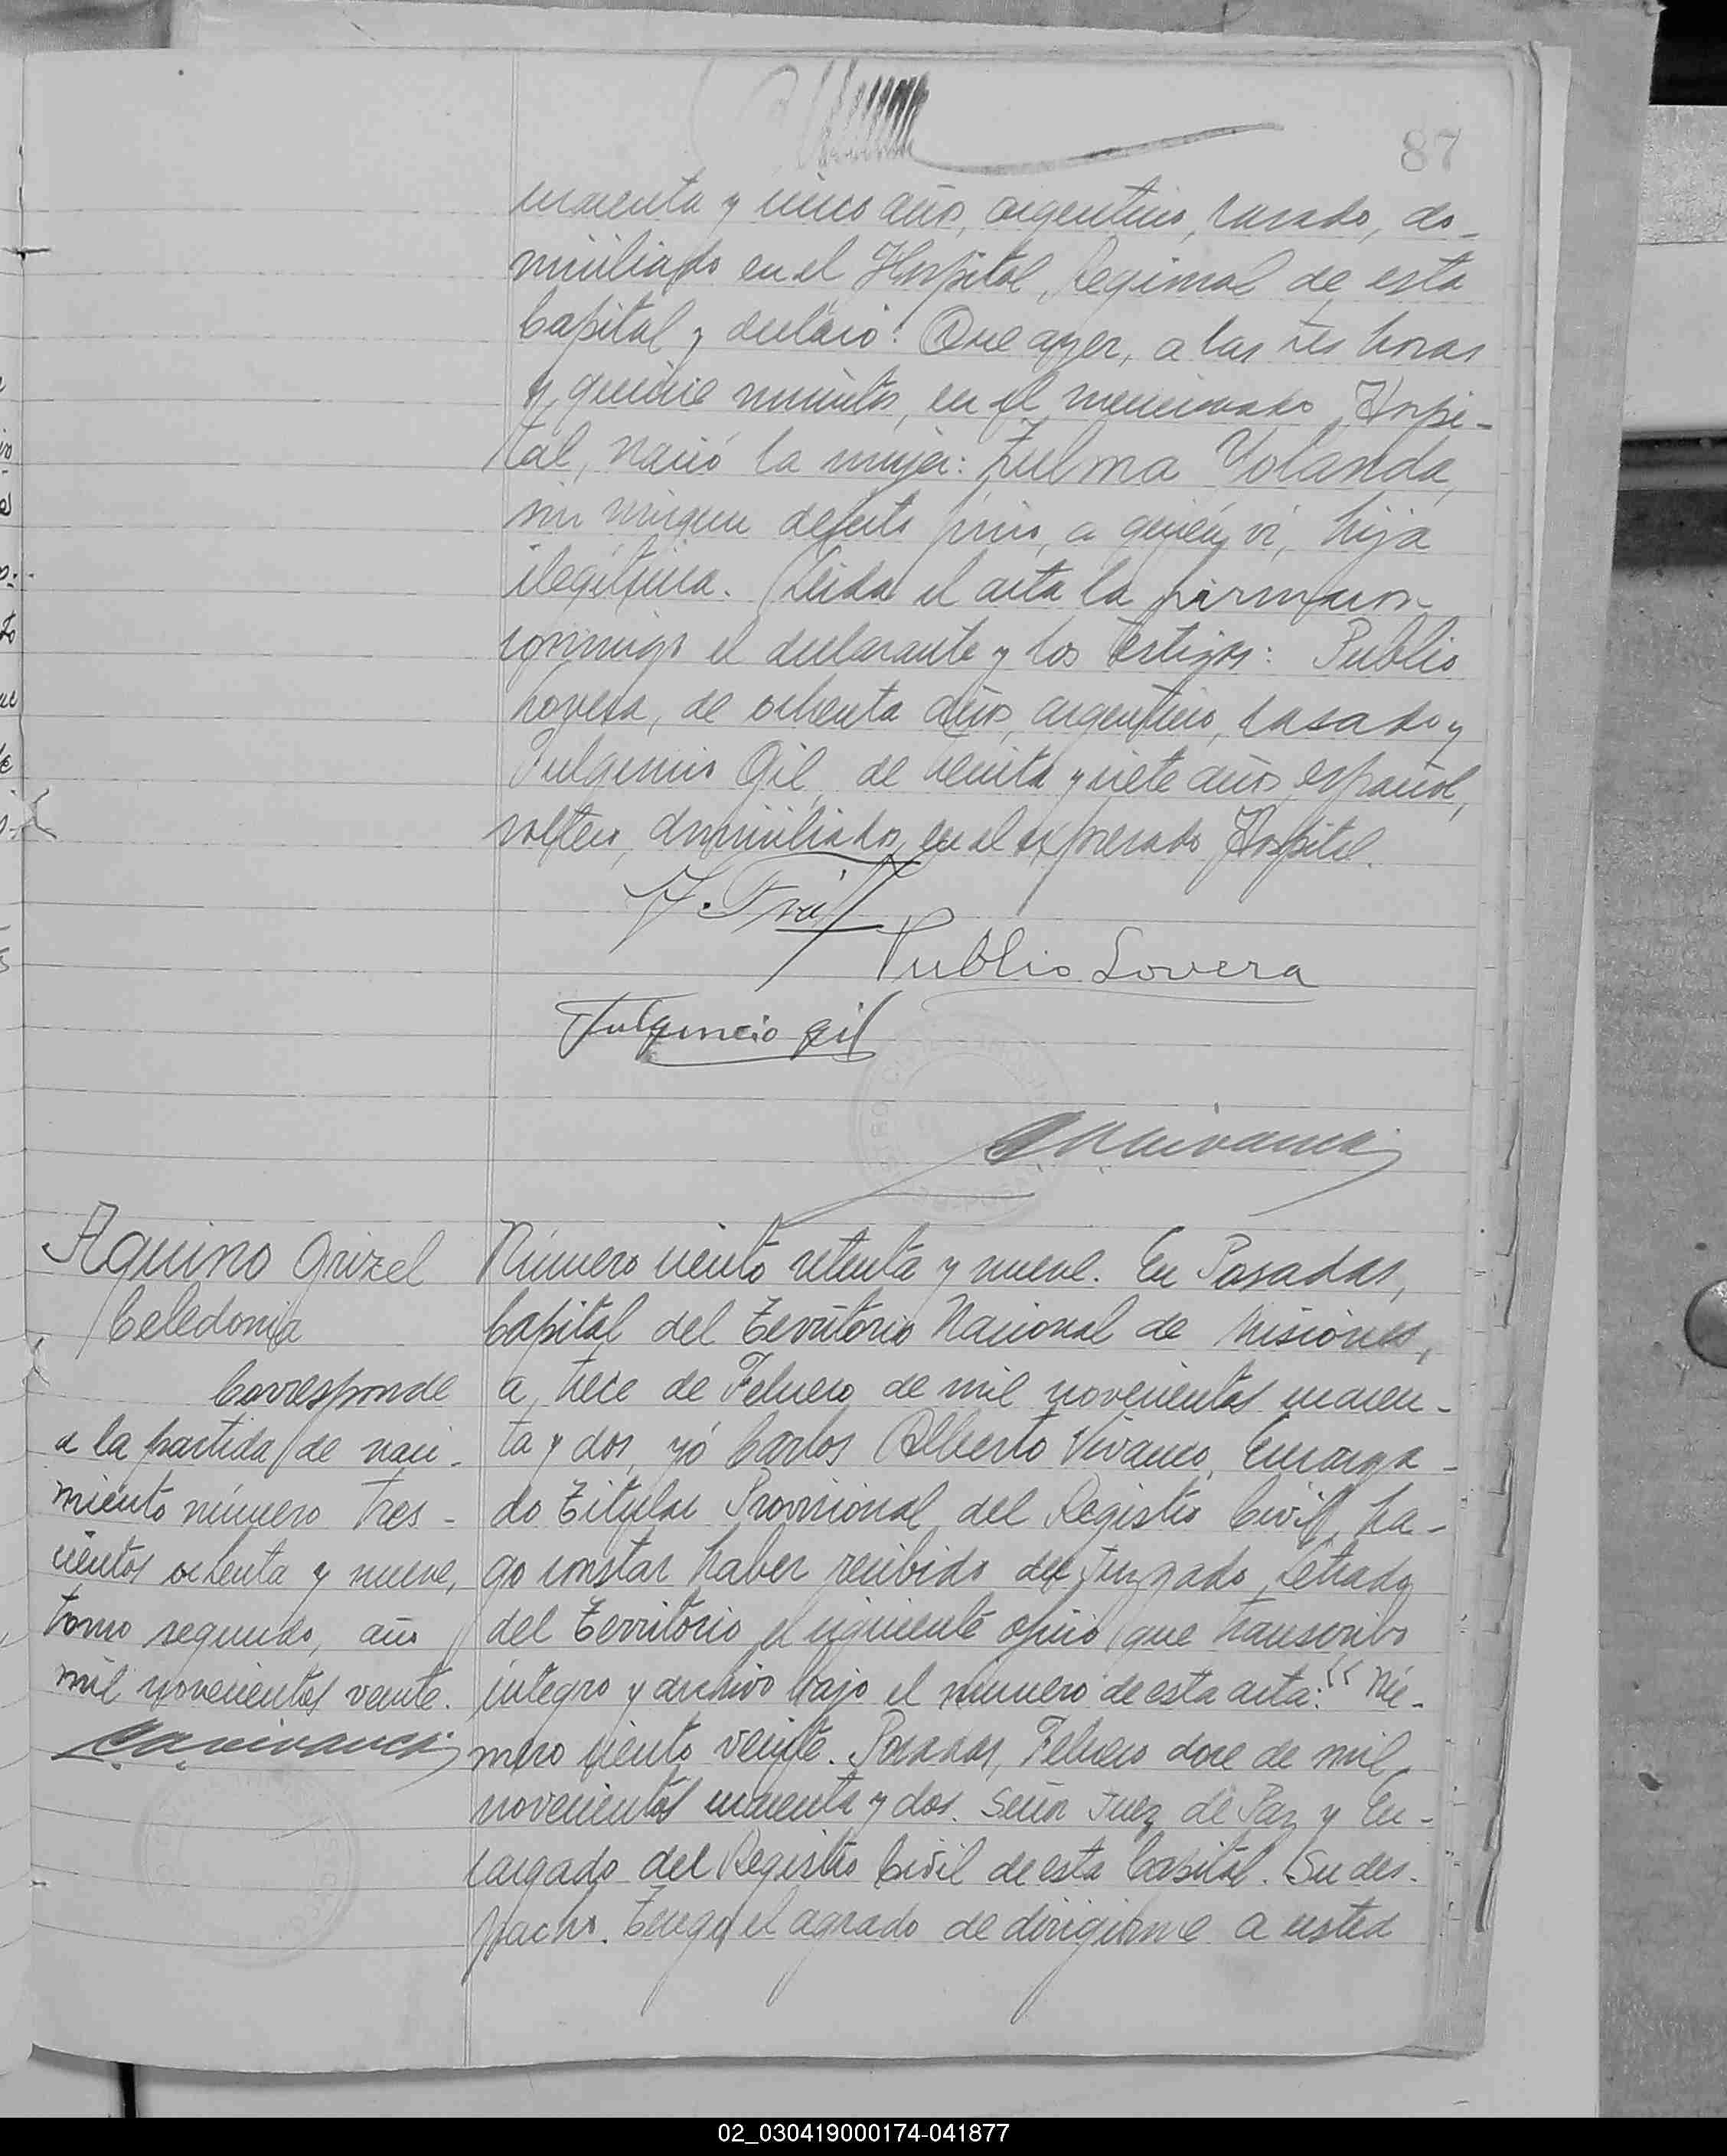 87
cuarenta y cinco años, argentino, casado, do-
miciliado en el Hospital Regional de esta
Capital y declaró: Que ayer, a las tres horas
y quince minutos, en el mencionado Hospi-
tal, nació la mujer: Zulma Yolanda,
sin ningun defecto físico, a quién ví, hija
ilegítima. Leida el acta la firmaron
conmigo el declarante y los testigos: Publio
Lovera, de ochenta años, argentino, casado y
Fulgencio Gil, de treinta y siete años, español,
soltero, domiciliados en el expresado Hospital.
Publio Lovera
Fulgencio gil
CAVivanco
Aquino Grizel
Celedonia
Corresponde
a la partida de naci-
miento número tres-
cientos ochenta y nueve,
tomo segundo, año
mil novecientos veinte.
CAVivanco
Número ciento setenta y nueve. En Posadas,
Capital del Territorio Nacional de Misiones,
a trece de Febrero de mil novecientos cuaren-
ta y dos, yó Carlos Alberto Vivanco, Encarga-
do Titular Provisional del Registro Civil, ha-
go constar haber recibido del Juzgado Letrado
del Territorio el siguiente oficio que transcribo
íntegro y archivo bajo el número de esta acta: "Nú-
mero ciento veinte. Posadas, Febrero doce de mil
novecientos cuarenta y dos. Señor Juez de Paz y En-
cargado del Registro Civil de esta Capital. Su des-
pacho. Tengo el agrado de dirigirme a usted
02_030419000174-041877